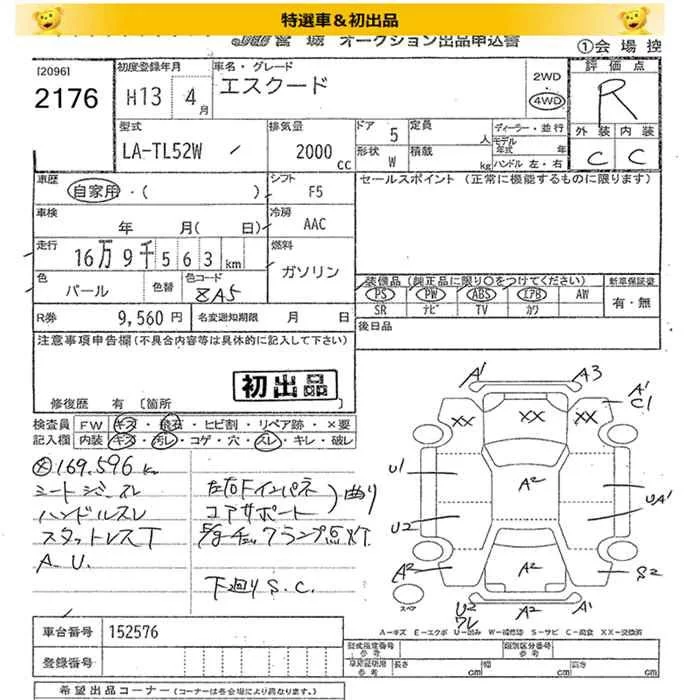 特選車＆初出品
オークション出品申込書
①会場控
[2096]
2176
初度登録年月
H13 4月
車名・グレード
エスクード
2WD
4WD
評価点
R
外装 内装
C C
型式
LA-TL52W
排気量
2000cc
ドア 5
形状 W
定員 人
積載 kg
ディーラー・並行
モデル年式 年
ハンドル 左・右
車歴
自家用・( )
シフト F5
セールスポイント（正常に機能するものに限ります）
車検
年 月( 日)
冷房 AAC
走行
16万9千563km
燃料
ガソリン
色
パール
色替
色コード
Z A5
装備品（純正品に限り○をつけてください）
新車保証書
PS PW ABS エアB AW
SR ナビ TV カワ
有・無
R券 9,560円
名変通知期限 月 日
後日品
注意事項申告欄（不具合内容等は具体的に記入して下さい）
初出品
修復歴 有 [箇所
検査員 FW キズ・飛石・ヒビ割・リペア跡・×要
記入欄 内装 キズ・汚レ・コゲ・穴・スレ・キレ・破レ
169.596km
シートジャースレ
ハンドルスレ
スタットレスT
A.U.
左右Fインパネ
コアサポート
曲り
チェックランプ点灯
下廻りS.C.
A1 A3
A1
C1
XX XX XX
U1
A2
UA1
U2
A2
A2
S2
スペア
U2
ワレ
A2
A1
A－キズ E－エクボ U－凹み W－補修跡 S－サビ C－腐食 XX－交換済
車台番号 152576
登録番号
型式指定番号
参考
類別区分番号
参考
車検証明用
参考
長さ cm
幅 cm
高さ cm
希望出品コーナー（コーナーは各会場により異なります。）